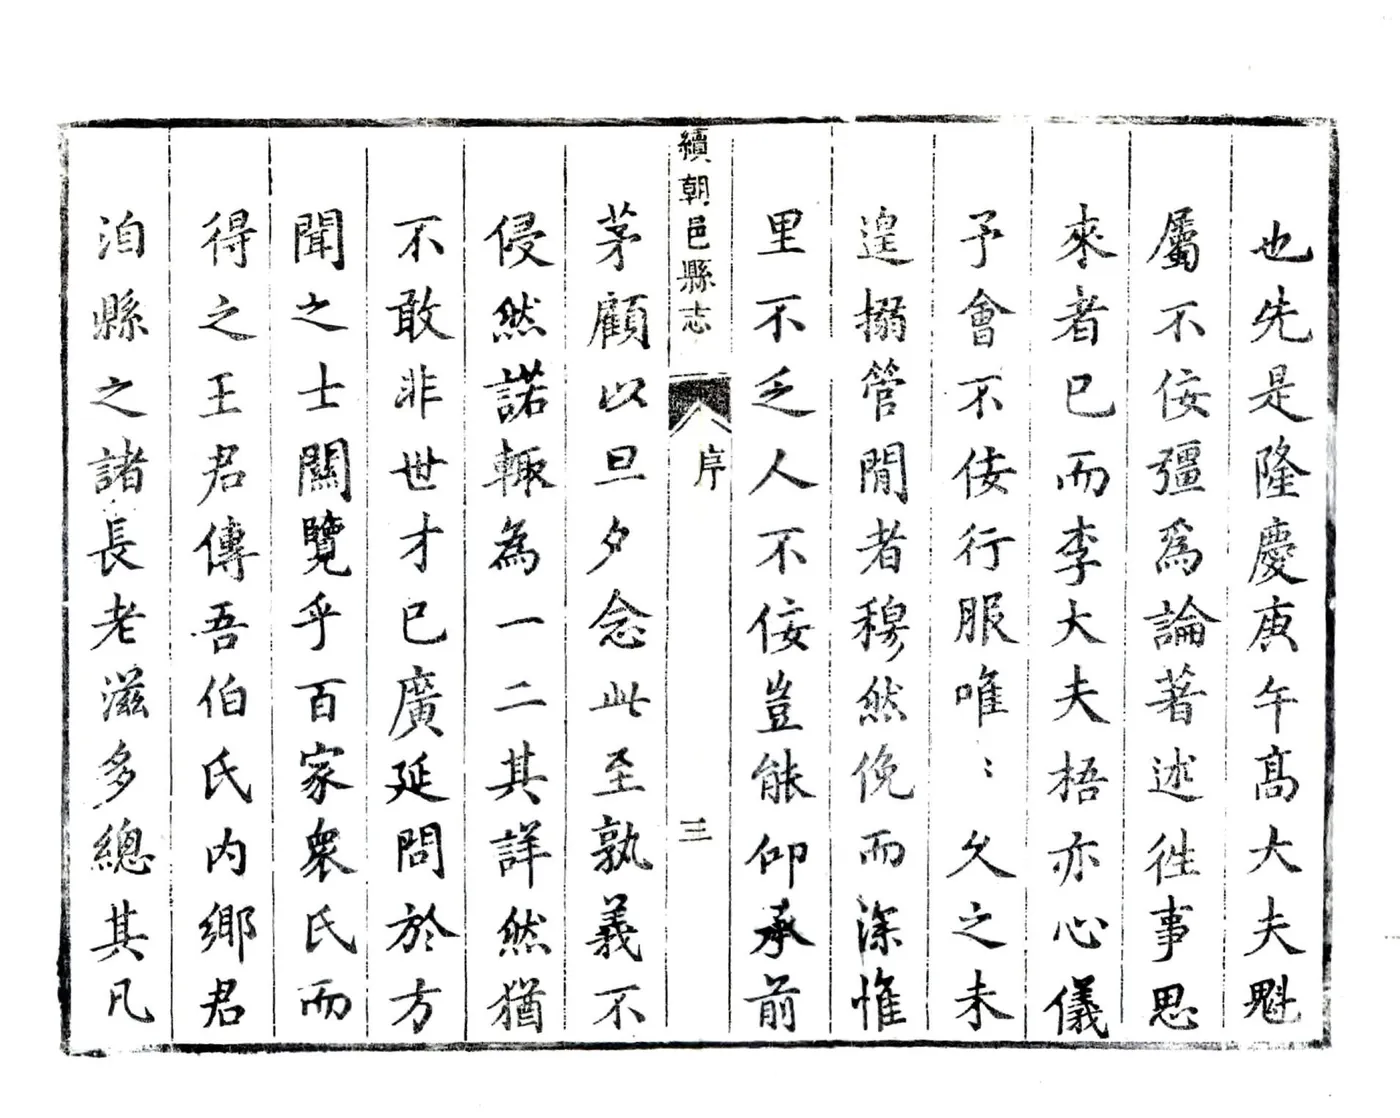 也先是隆慶庚午髙大夫魁
屬不佞彊爲論著述徃事思
來者已而李大夫梧亦心儀
予會不佞行服唯〻久之未
遑搦管閒者穆然俛而深惟
里不乏人不佞豈能仰承前
續朝邑縣志
序
三
茅顧以旦夕念此至孰義不
侵然諾輙為一二其詳然猶
不敢非世才已廣延問於方
聞之士闗覽乎百家衆氏而
得之王君傳吾伯氏内鄉君
洎縣之諸長老滋多總其凡